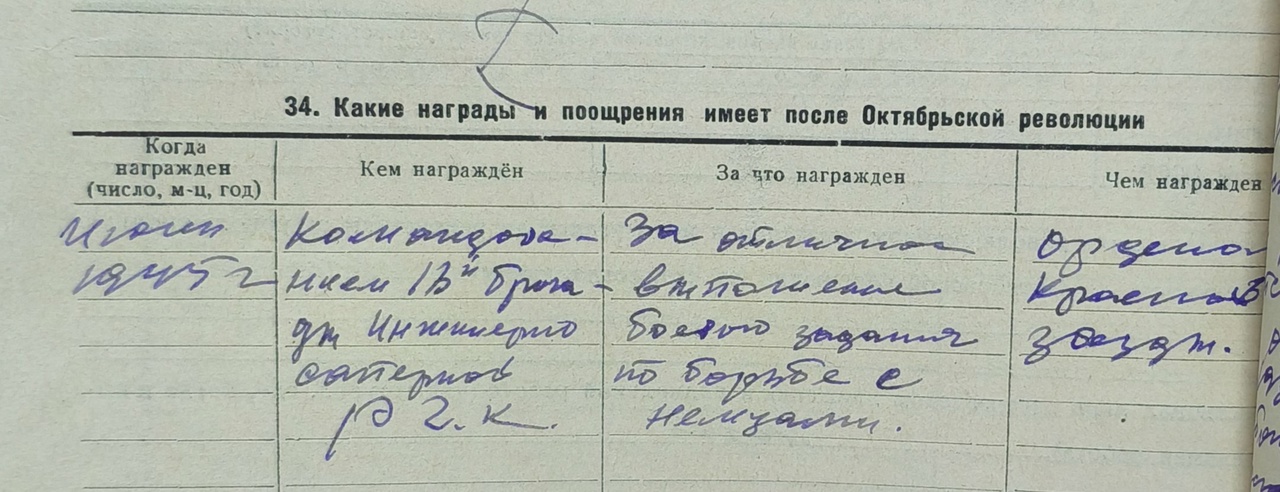 34. Какие награды и поощрения имеет после Октябрьской революции
Когда награжден (число, м-ц, год)
Кем награждён
За что награжден
Чем награжден
Июнь 1945 г
Командова-
нием 13й Брига-
ды Инженерно
саперной
Р Г. К.
За отличное
выполнение
боевого задания
по борьбе с
немцами.
Орденом
Красной
звезды.